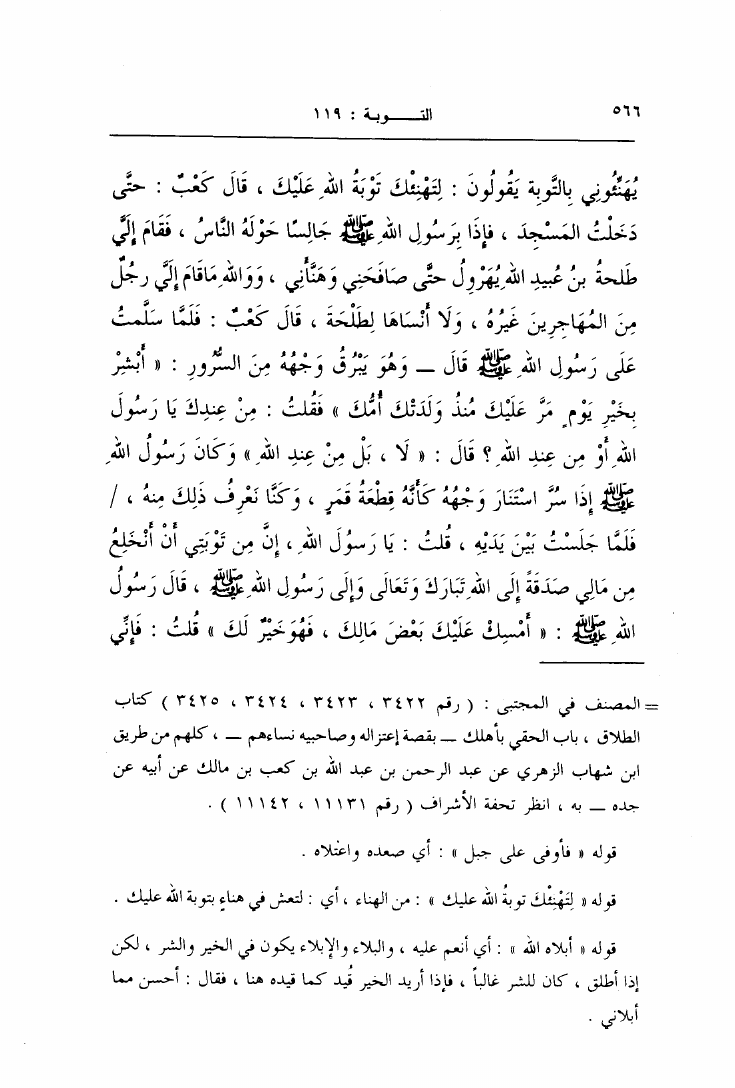 ٥٦٦
التـــوبـة : ١١٩
يُهَنِّئُونِي بِالتَّوبة يَقُولُونَ : لِتَهْنِئْكَ تَوْبَةُ اللهِ عَلَيْكَ ، قَالَ كَعْبٌ : حتَّى
دَخَلْتُ المَسْجِدَ ، فإِذَا بِرَسُولِ اللهِ ﷺ جَالِسًا حَوْلَهُ النَّاسُ ، فَقَامَ إِلَيَّ
طَلحةُ بنُ عُبيدِ اللهِ يُهَرْوِلُ حتَّى صَافَحَنِي وَهَنَّأَنِي ، وَوَاللهِ مَاقَامَ إِلَيَّ رجُلٌ
مِنَ المُهَاجِرِينَ غَيْرُهُ ، وَلَا أَنْسَاهَا لِطَلْحَةَ ، قَالَ كَعْبٌ : فَلَمَّا سَلَّمتُ
عَلَى رَسُولِ اللهِ ﷺ قَالَ ــ وَهُوَ يَبْرُقُ وَجْهُهُ مِنَ السُّرُورِ : « أَبْشِرْ
بِخَيْرِ يَوْمٍ مَرَّ عَلَيْكَ مُنذُ وَلَدَتْكَ أُمُّكَ » فَقُلتُ : مِنْ عِندِكَ يَا رَسُولَ
اللهِ أَوْ مِن عِندِ اللهِ ؟ قَالَ : « لَا ، بَلْ مِنْ عِندِ اللهِ » وَكَانَ رَسُولُ اللهِ
ﷺ إِذَا سُرَّ اسْتَنَارَ وَجْهُهُ كَأَنَّهُ قِطْعَةُ قَمَرٍ ، وَكُنَّا نَعْرِفُ ذَلِكَ مِنهُ ، /
فَلَمَّا جَلَسْتُ بَيْنَ يَدَيْهِ ، قُلتُ : يَا رَسُولَ اللهِ ، إِنَّ مِن تَوْبَتِي أَنْ أَنْخَلِعَ
مِن مَالِي صَدَقَةً إِلَى اللهِ تَبَارَكَ وَتَعَالَى وَإِلَى رَسُولِ اللهِ ﷺ ، قَالَ رَسُولُ
اللهِ ﷺ : « أَمْسِكْ عَلَيْكَ بَعْضَ مَالِكَ ، فَهُوَ خَيْرٌ لَكَ » قُلتُ : فَإِنِّي
= المصنف في المجتبى : ( رقم ٣٤٢٢ ، ٣٤٢٣ ، ٣٤٢٤ ، ٣٤٢٥ ) كتاب
الطلاق ، باب الحقي بأهلك ــ بقصة إعتزاله وصاحبيه نساءهم ــ ، كلهم من طريق
ابن شهاب الزهري عن عبد الرحمن بن عبد الله بن كعب بن مالك عن أبيه عن
جده ــ به ، انظر تحفة الأشراف ( رقم ١١١٣١ ، ١١١٤٢ ) .
قوله « فأوفى على جبل » : أي صعده واعتلاه .
قوله « لِتَهْنِئْكَ توبةُ الله عليك » : من الهناء ، أي : لتعش في هناءٍ بتوبة الله عليك .
قوله « أبلاه الله » : أي أنعم عليه ، والبلاء والإبلاء يكون في الخير والشر ، لكن
إذا أطلق ، كان للشر غالباً ، فإذا أريد الخير قُيد كما قيده هنا ، فقال : أحسن مما
أبلاني .